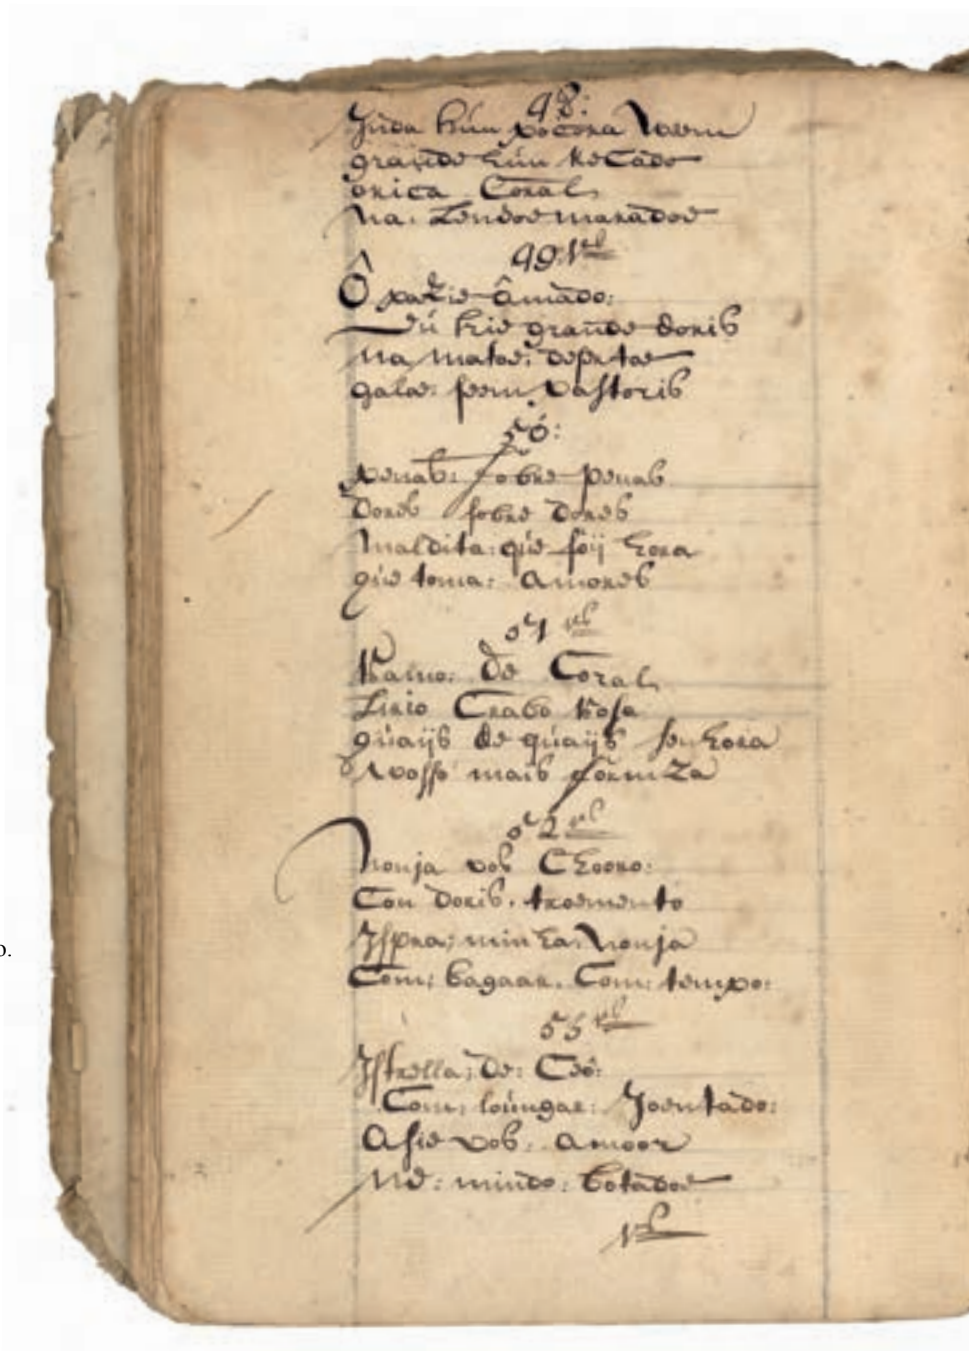 48:
Inda hum pocora Vem
grande hum Recado
orica Coral
Na: Lendoe maradoe
49 Vl
Ô pazie âmado:
Eu hie grande doris
na matoe: deprtae
galae: sem pastoris
50:
penas: sobre penas
Dores sobre dores
Maldita: que foij hora
que toma: amores
51 Vl
Ramo: de Coral
Lirio Crabo Rosa
quaijs de quaijs senhora
Vosso mais formza
52 Vl
Nonja vos Chooro:
Con doris. troemento
Ispra: minha: Nonja
Com: bagaar. Com: tempo:
53 Vl
Istrella: de: Ceô:
Com: loungar: Joentado:
Asie vos: amoor
Ne: mindo: botadoe
Vl
o.